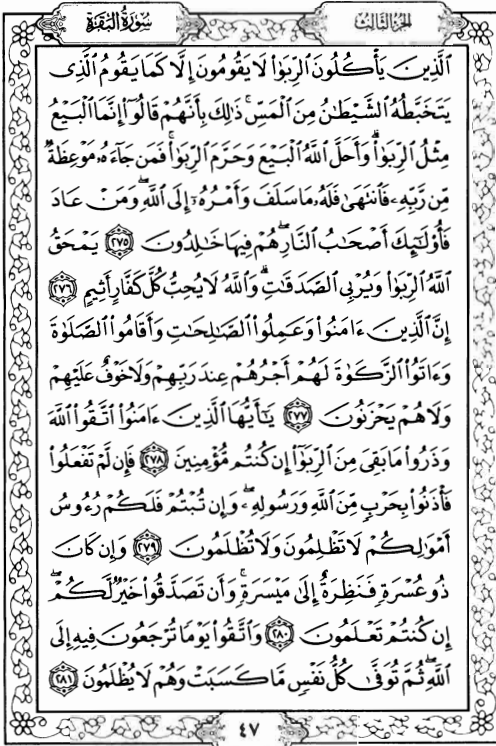 سُورَةُ البَقَرَةِ
الجُزْءُ الثَّالِثُ
الَّذِينَ يَأْكُلُونَ الرِّبَوٰا۟ لَا يَقُومُونَ إِلَّا كَمَا يَقُومُ الَّذِى
يَتَخَبَّطُهُ الشَّيْطَٰنُ مِنَ الْمَسِّ ۚ ذَٰلِكَ بِأَنَّهُمْ قَالُوٓا۟ إِنَّمَا الْبَيْعُ
مِثْلُ الرِّبَوٰا۟ ۗ وَأَحَلَّ اللَّهُ الْبَيْعَ وَحَرَّمَ الرِّبَوٰا۟ ۚ فَمَن جَآءَهُۥ مَوْعِظَةٌ
مِّن رَّبِّهِۦ فَانتَهَىٰ فَلَهُۥ مَا سَلَفَ وَأَمْرُهُۥٓ إِلَى اللَّهِ ۖ وَمَنْ عَادَ
فَأُو۟لَٰٓئِكَ أَصْحَٰبُ النَّارِ ۖ هُمْ فِيهَا خَٰلِدُونَ ٢٧٥ يَمْحَقُ
اللَّهُ الرِّبَوٰا۟ وَيُرْبِى الصَّدَقَٰتِ ۗ وَاللَّهُ لَا يُحِبُّ كُلَّ كَفَّارٍ أَثِيمٍ ٢٧٦
إِنَّ الَّذِينَ ءَامَنُوا۟ وَعَمِلُوا۟ الصَّٰلِحَٰتِ وَأَقَامُوا۟ الصَّلَوٰةَ
وَءَاتَوُا۟ الزَّكَوٰةَ لَهُمْ أَجْرُهُمْ عِندَ رَبِّهِمْ وَلَا خَوْفٌ عَلَيْهِمْ
وَلَا هُمْ يَحْزَنُونَ ٢٧٧ يَٰٓأَيُّهَا الَّذِينَ ءَامَنُوا۟ اتَّقُوا۟ اللَّهَ
وَذَرُوا۟ مَا بَقِىَ مِنَ الرِّبَوٰٓا۟ إِن كُنتُم مُّؤْمِنِينَ ٢٧٨ فَإِن لَّمْ تَفْعَلُوا۟
فَأْذَنُوا۟ بِحَرْبٍ مِّنَ اللَّهِ وَرَسُولِهِۦ ۖ وَإِن تُبْتُمْ فَلَكُمْ رُءُوسُ
أَمْوَٰلِكُمْ لَا تَظْلِمُونَ وَلَا تُظْلَمُونَ ٢٧٩ وَإِن كَانَ
ذُو عُسْرَةٍ فَنَظِرَةٌ إِلَىٰ مَيْسَرَةٍ ۚ وَأَن تَصَدَّقُوا۟ خَيْرٌ لَّكُمْ ۖ
إِن كُنتُمْ تَعْلَمُونَ ٢٨٠ وَاتَّقُوا۟ يَوْمًا تُرْجَعُونَ فِيهِ إِلَى
اللَّهِ ۖ ثُمَّ تُوَفَّىٰ كُلُّ نَفْسٍ مَّا كَسَبَتْ وَهُمْ لَا يُظْلَمُونَ ٢٨١
٤٧